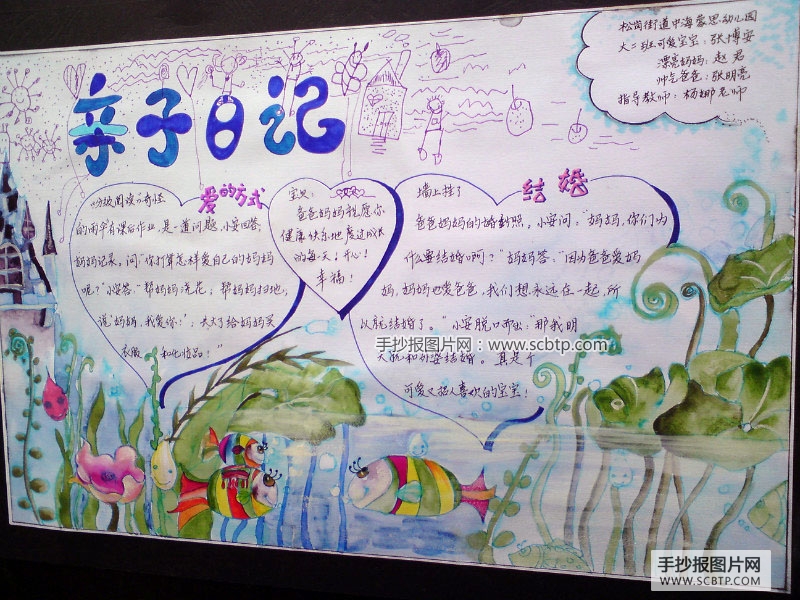 亲子日记
松岗街道中海蒙思幼儿园
大二班可爱宝宝：张博安
漂亮妈妈：赵君
帅气爸爸：张明亮
指导教师：杨娜老师
爱的方式
《分级阅读》奇怪
的雨伞有课后作业，是一道问题，小安回答，
妈妈记录，问“你打算怎样爱自己的妈妈
呢？”小安答：“帮妈妈浇花；帮妈妈扫地，
说‘妈妈，我爱你！’；长大了给妈妈买
衣服 和化妆品！”
宝贝：
爸爸妈妈祝愿你
健康快乐地度过成长
的每一天！开心！
幸福！
结婚
墙上挂了
爸爸妈妈的婚纱照，小安问：“妈妈，你们为
什么要结婚啊？”妈妈答：“因为爸爸爱妈
妈，妈妈也爱爸爸，我们想永远在一起，所
以就结婚了。”小安脱口而出：“那我明
天就和 结婚。真是个
可爱又招人喜欢的宝宝！
手抄报图片网：www.scbtp.com
手抄报图片网
WWW.SCBTP.COM